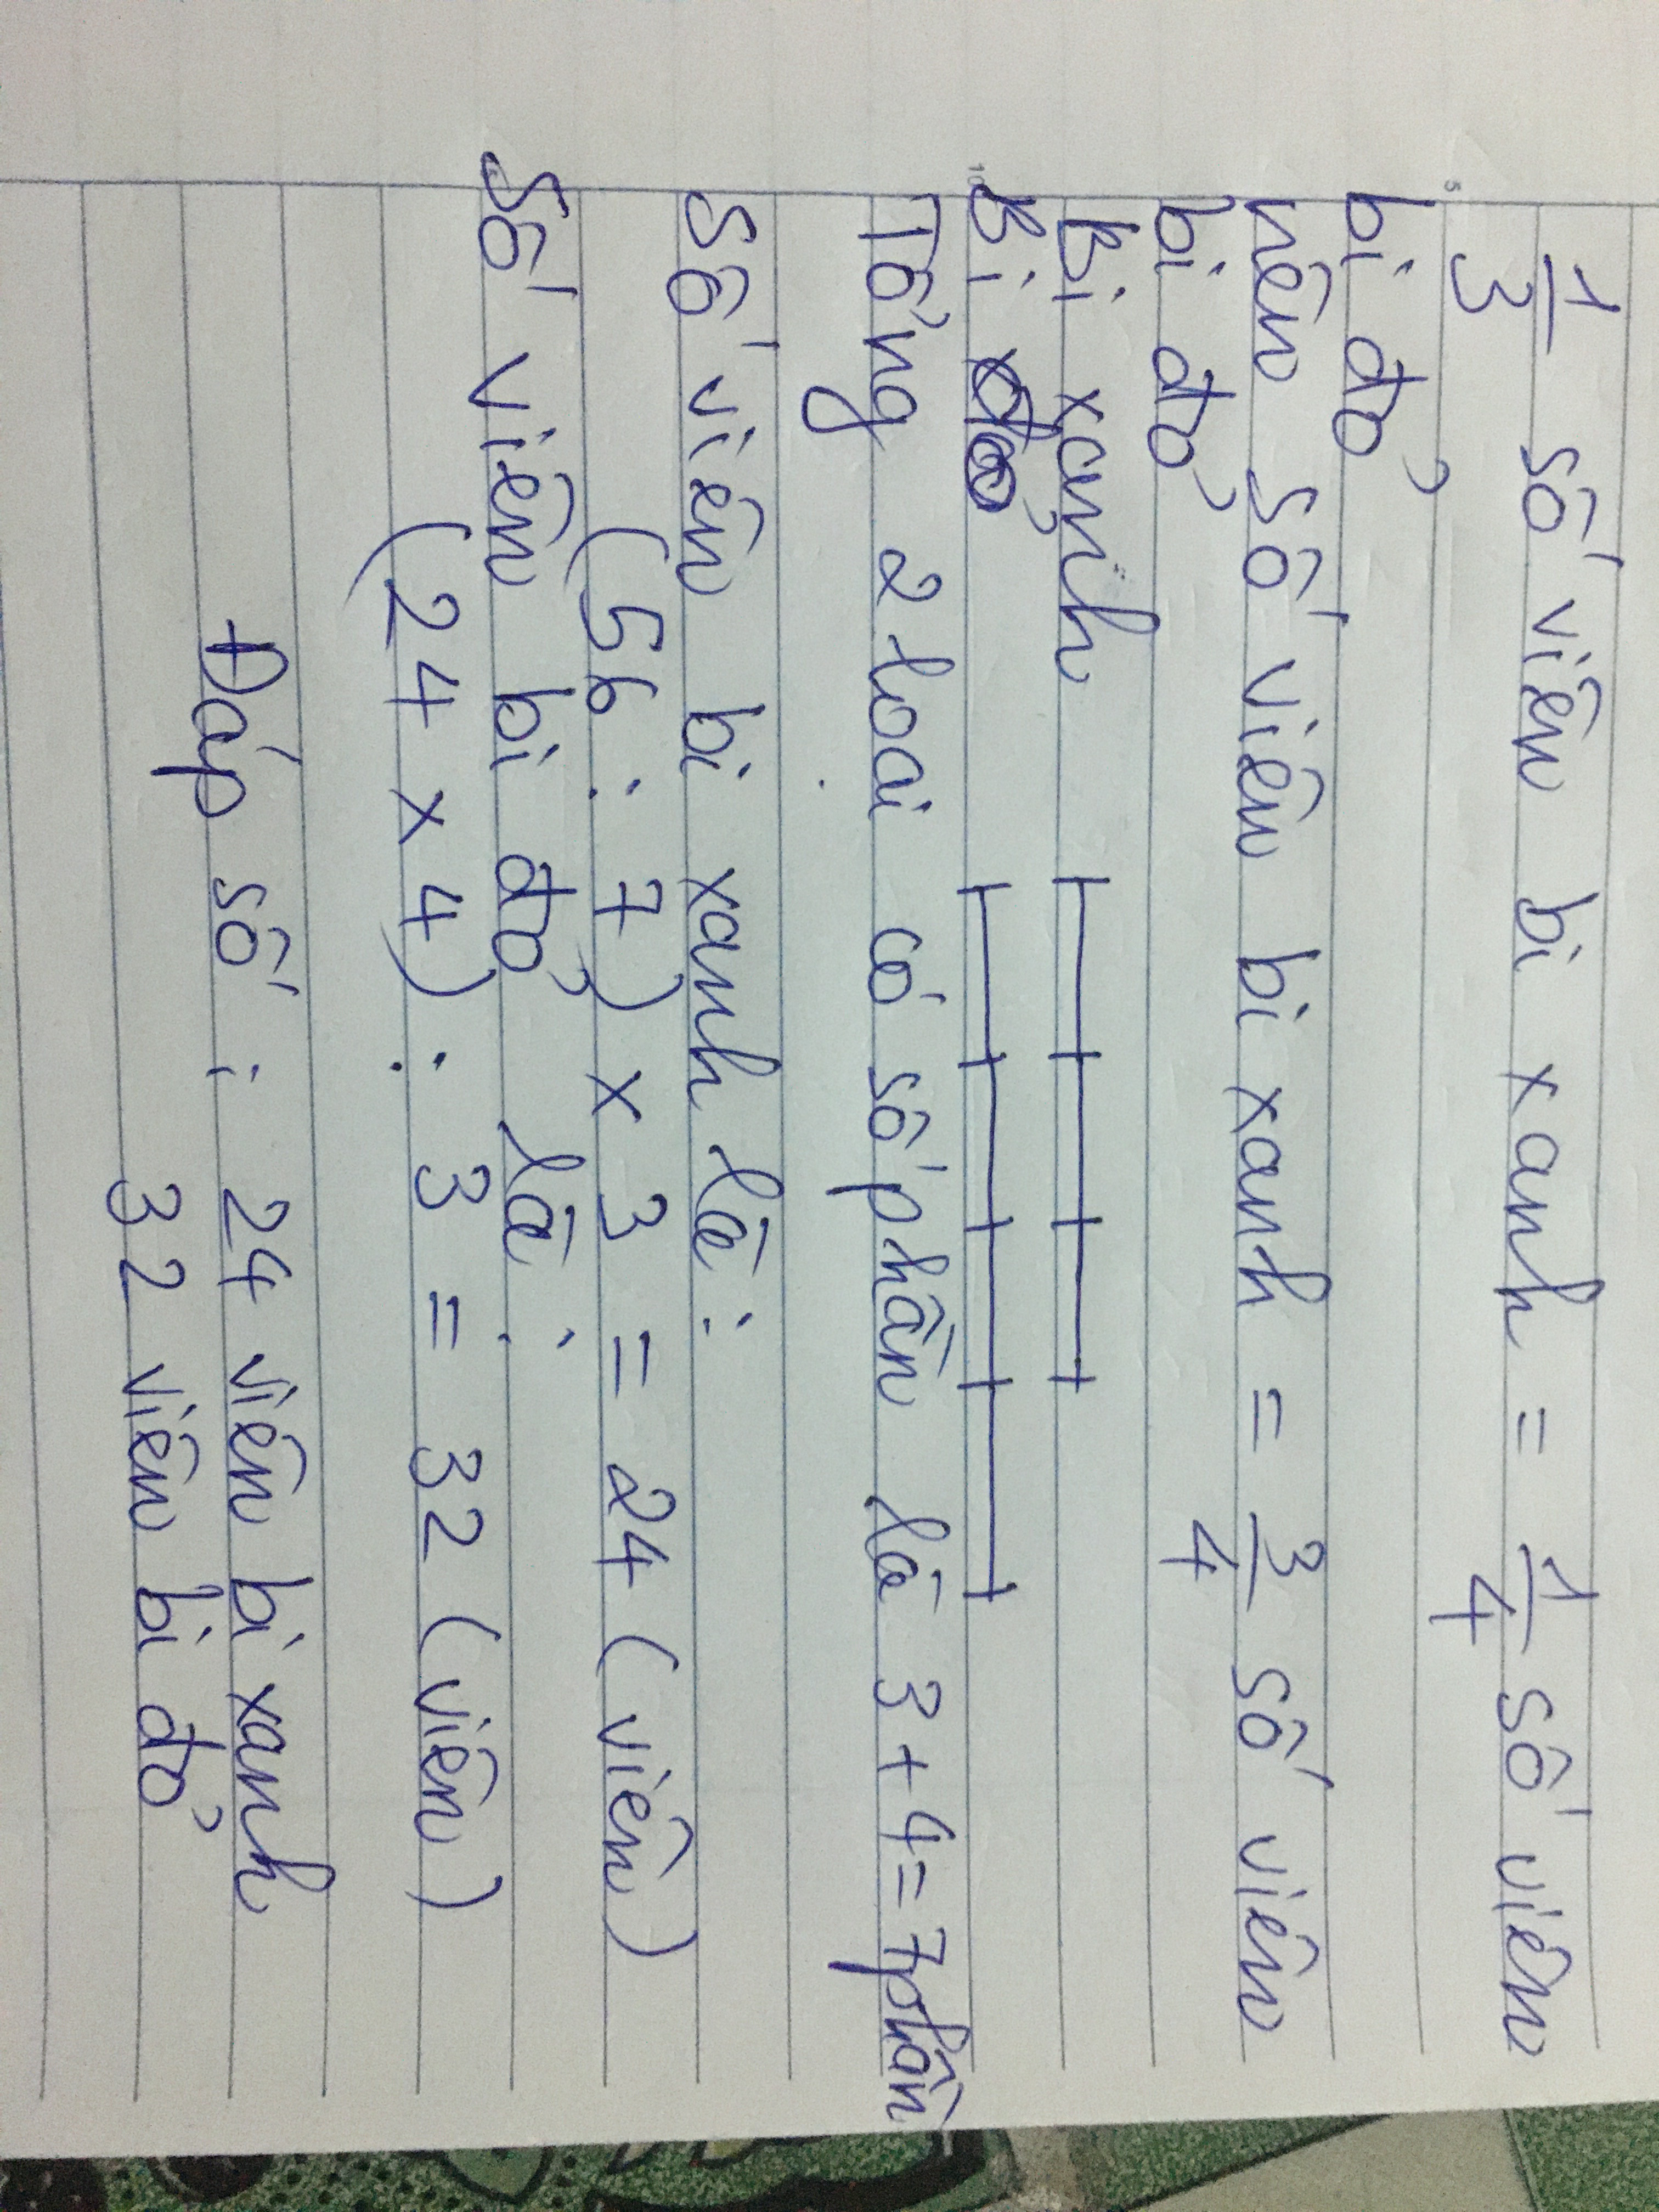 1/3 số viên bi xanh = 1/4 số viên
bi đỏ
nên số viên bi xanh = 3/4 số viên
bi đỏ
Bi xanh
Bi đỏ
Tổng 2 loại có số phần là 3 + 4 = 7 phần
Số viên bi xanh là :
(56 : 7) x 3 = 24 (viên)
Số viên bi đỏ là :
(24 x 4) : 3 = 32 (viên)
Đáp số : 24 viên bi xanh
32 viên bi đỏ